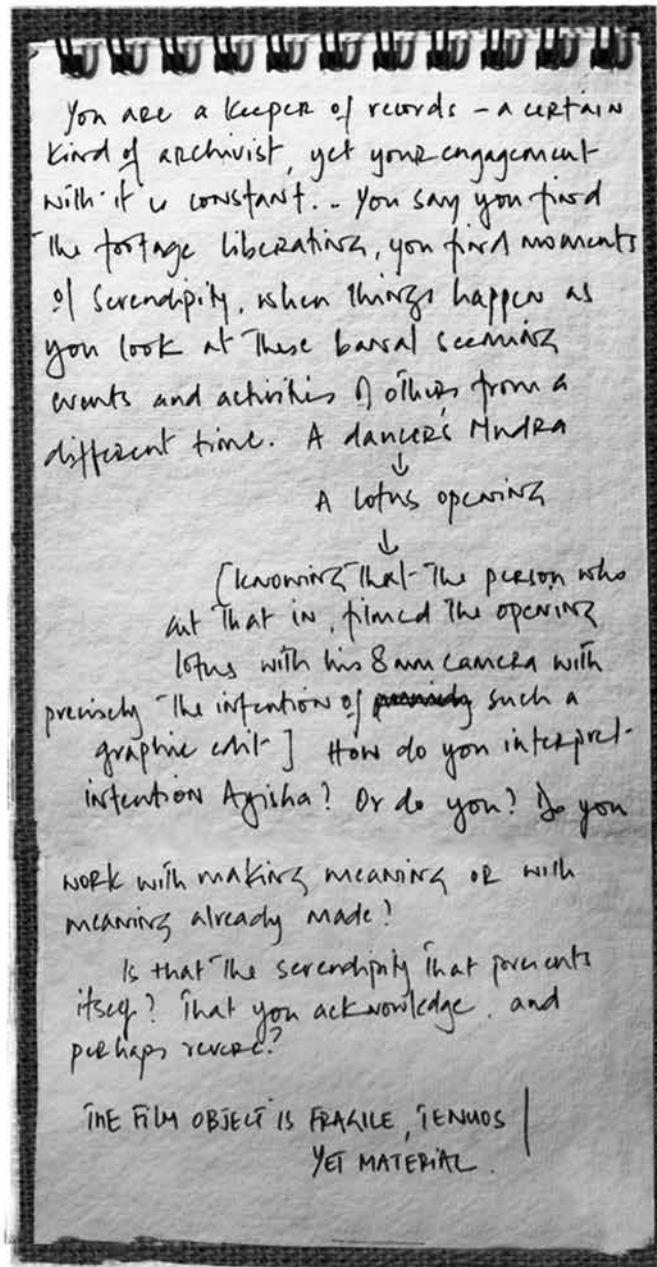 You are a keeper of records – a certain
kind of archivist, yet your engagement
with it is constant.. You say you find
the footage liberating, you find moments
of serendipity, when things happen as
you look at these banal seeming
events and activities of others from a
different time. A dancer's Mudra
↓
A lotus opening
↓
[knowing that the person who
cut that in, filmed the opening
lotus with his 8mm camera with
precisely the intention of such a
graphic edit] How do you interpret
intention Ayisha? Or do you? Do you
work with making meaning or with
meaning already made?
Is that the serendipity that presents
itself? That you acknowledge, and
perhaps revere?
THE FILM OBJECT IS FRAGILE, TENUOS
YET MATERIAL.